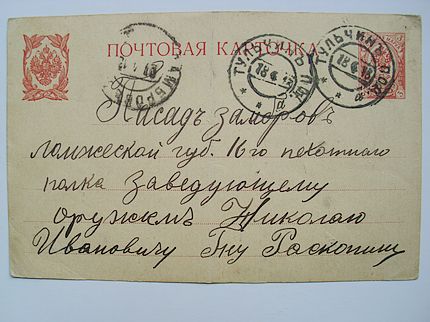 ПОЧТОВАЯ КАРТОЧКА
ТУЛЬЧИНЪ ПОД.
18 4 13
а
ТУЛЬЧИНЪ ПОД.
18 4 13
а
Посадъ Замбровъ
Ломжеской губ. 16го пехотнаго
полка Заведующему
оружіемъ Николаю
Ивановичу Гну